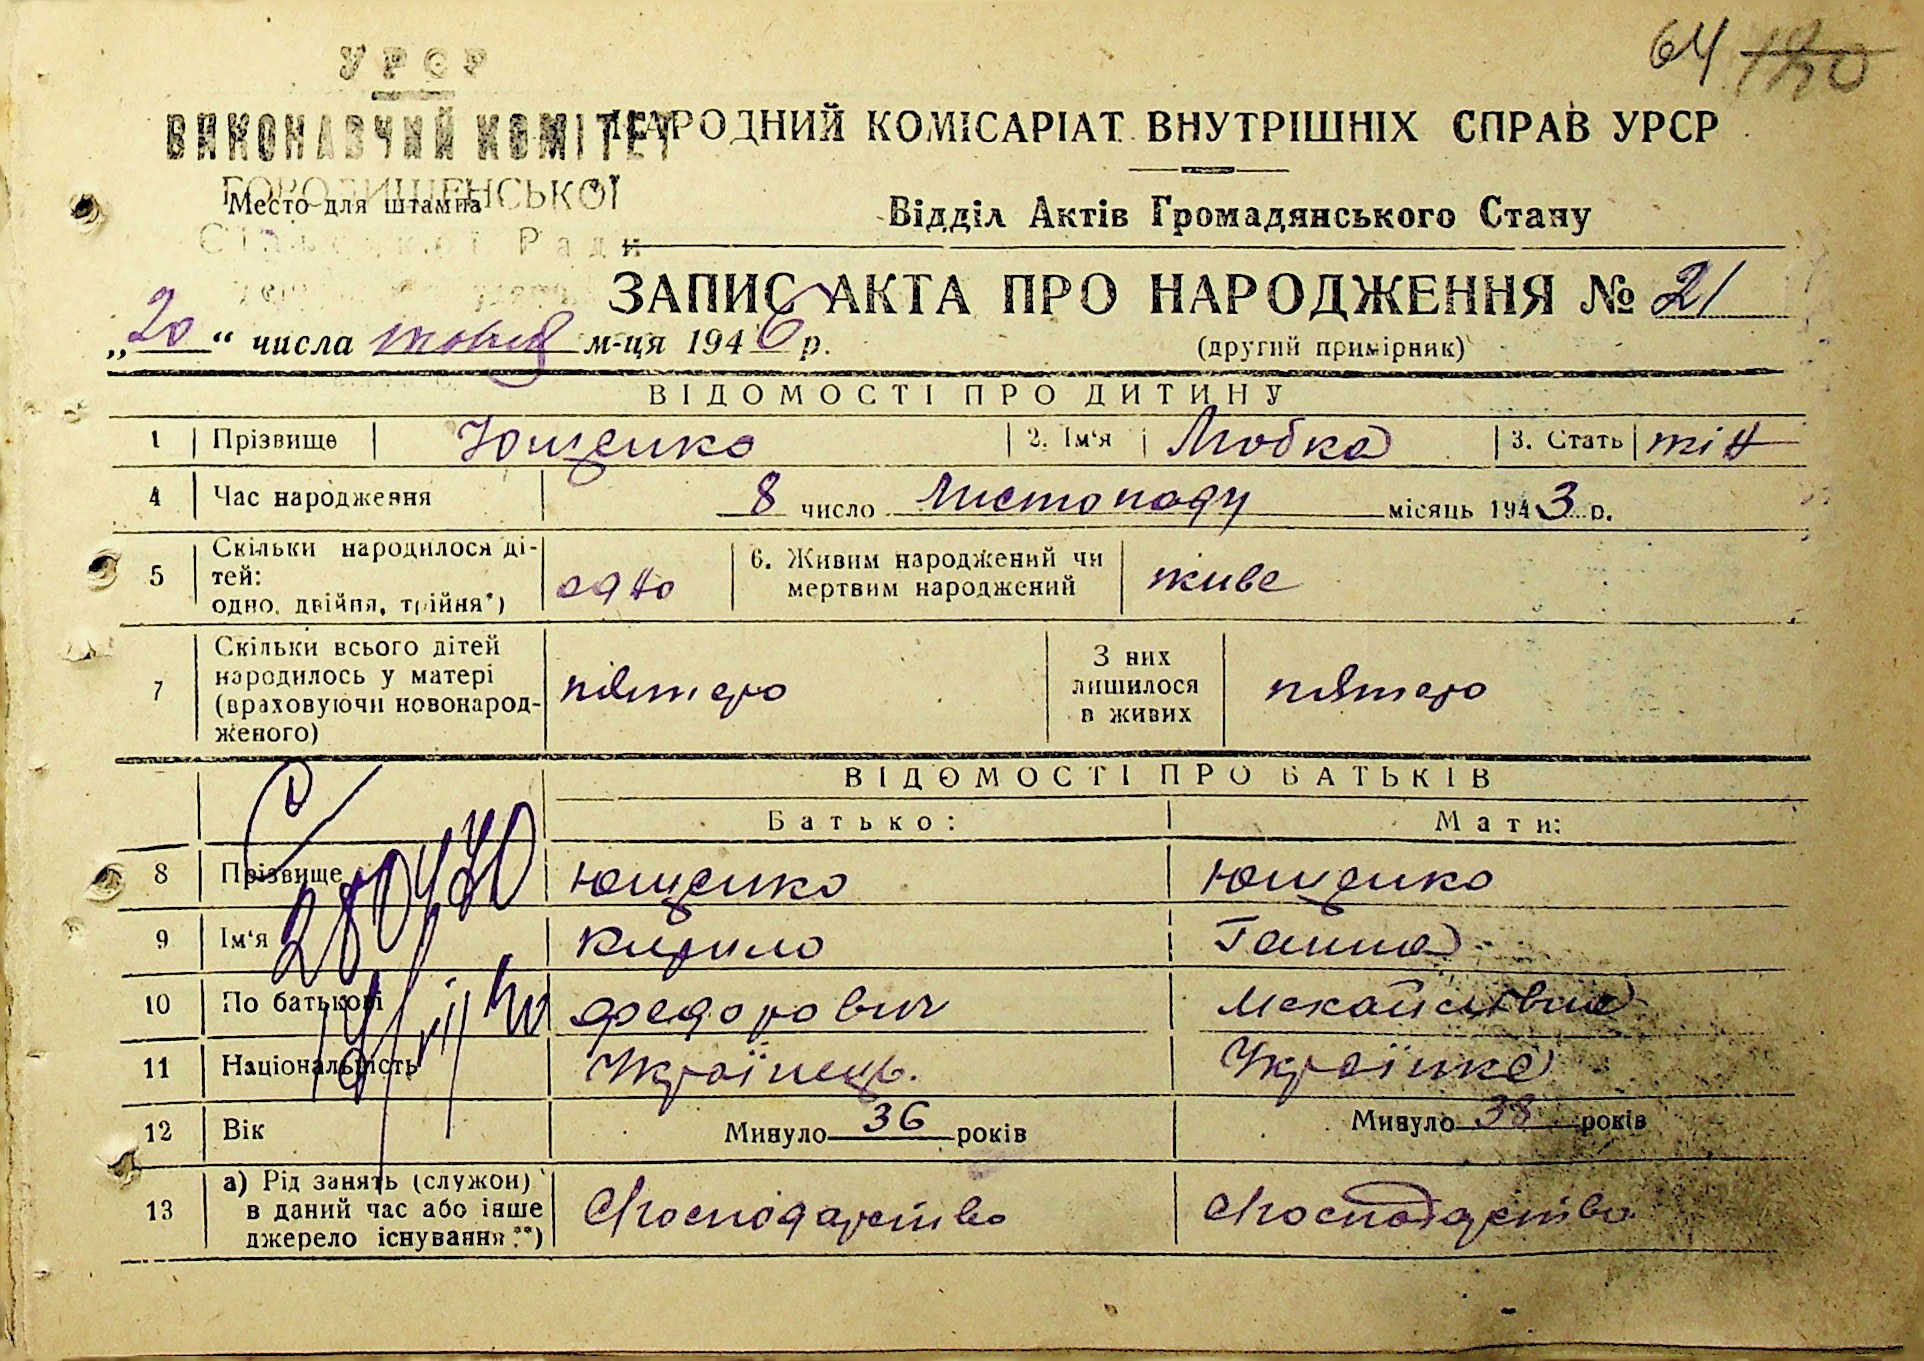 64 180
УРСР
ВИКОНАВЧИЙ КОМІТЕТ
НАРОДНИЙ КОМІСАРІАТ ВНУТРІШНІХ СПРАВ УРСР
ГОРОДИЩЕНСЬКОЇ
Место для штампа
Відділ Актів Громадянського Стану
Сільської Ради
ЗАПИС АКТА ПРО НАРОДЖЕННЯ № 21
„20“ числа жовтня м-ця 1946 р.
(другий примірник)
ВІДОМОСТІ ПРО ДИТИНУ
1 Прізвище Ющенко 2. Ім‘я Любка 3. Стать жін
4 Час народження 8 число Листопаду місяць 1943 р.
5 Скільки народилося ді-
тей:
одно, двійня, трійня*) одно
6. Живим народжений чи
мертвим народжений живе
7 Скільки всього дітей
народилось у матері
(враховуючи новонарод-
женого) пятеро
З них
лишилося
в живих пятеро
ВІДОМОСТІ ПРО БАТЬКІВ
Батько: Мати:
8 Прізвище Ющенко Ющенко
9 Ім‘я Кирило Ганна
10 По батькові Федорович Михайлівна
11 Національність Українець. Українка
12 Вік Минуло 36 років Минуло 38 років
13 а) Рід занять (служби)
в даний час або інше
джерело існування **) Господарство Господарство